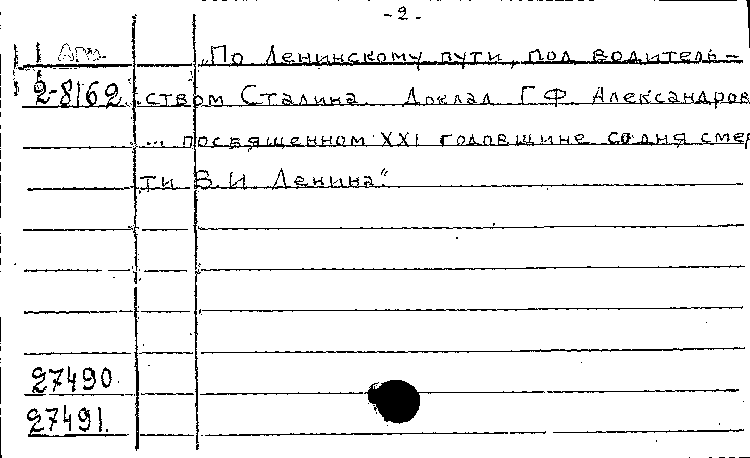 - 2 -
„По Ленинскому пути, под водитель-
2-8162 ством Сталина. Доклад Г.Ф. Александров
... посвященном XXI годовщине со дня смер
ти В.И. Ленина"
27490.
27491.